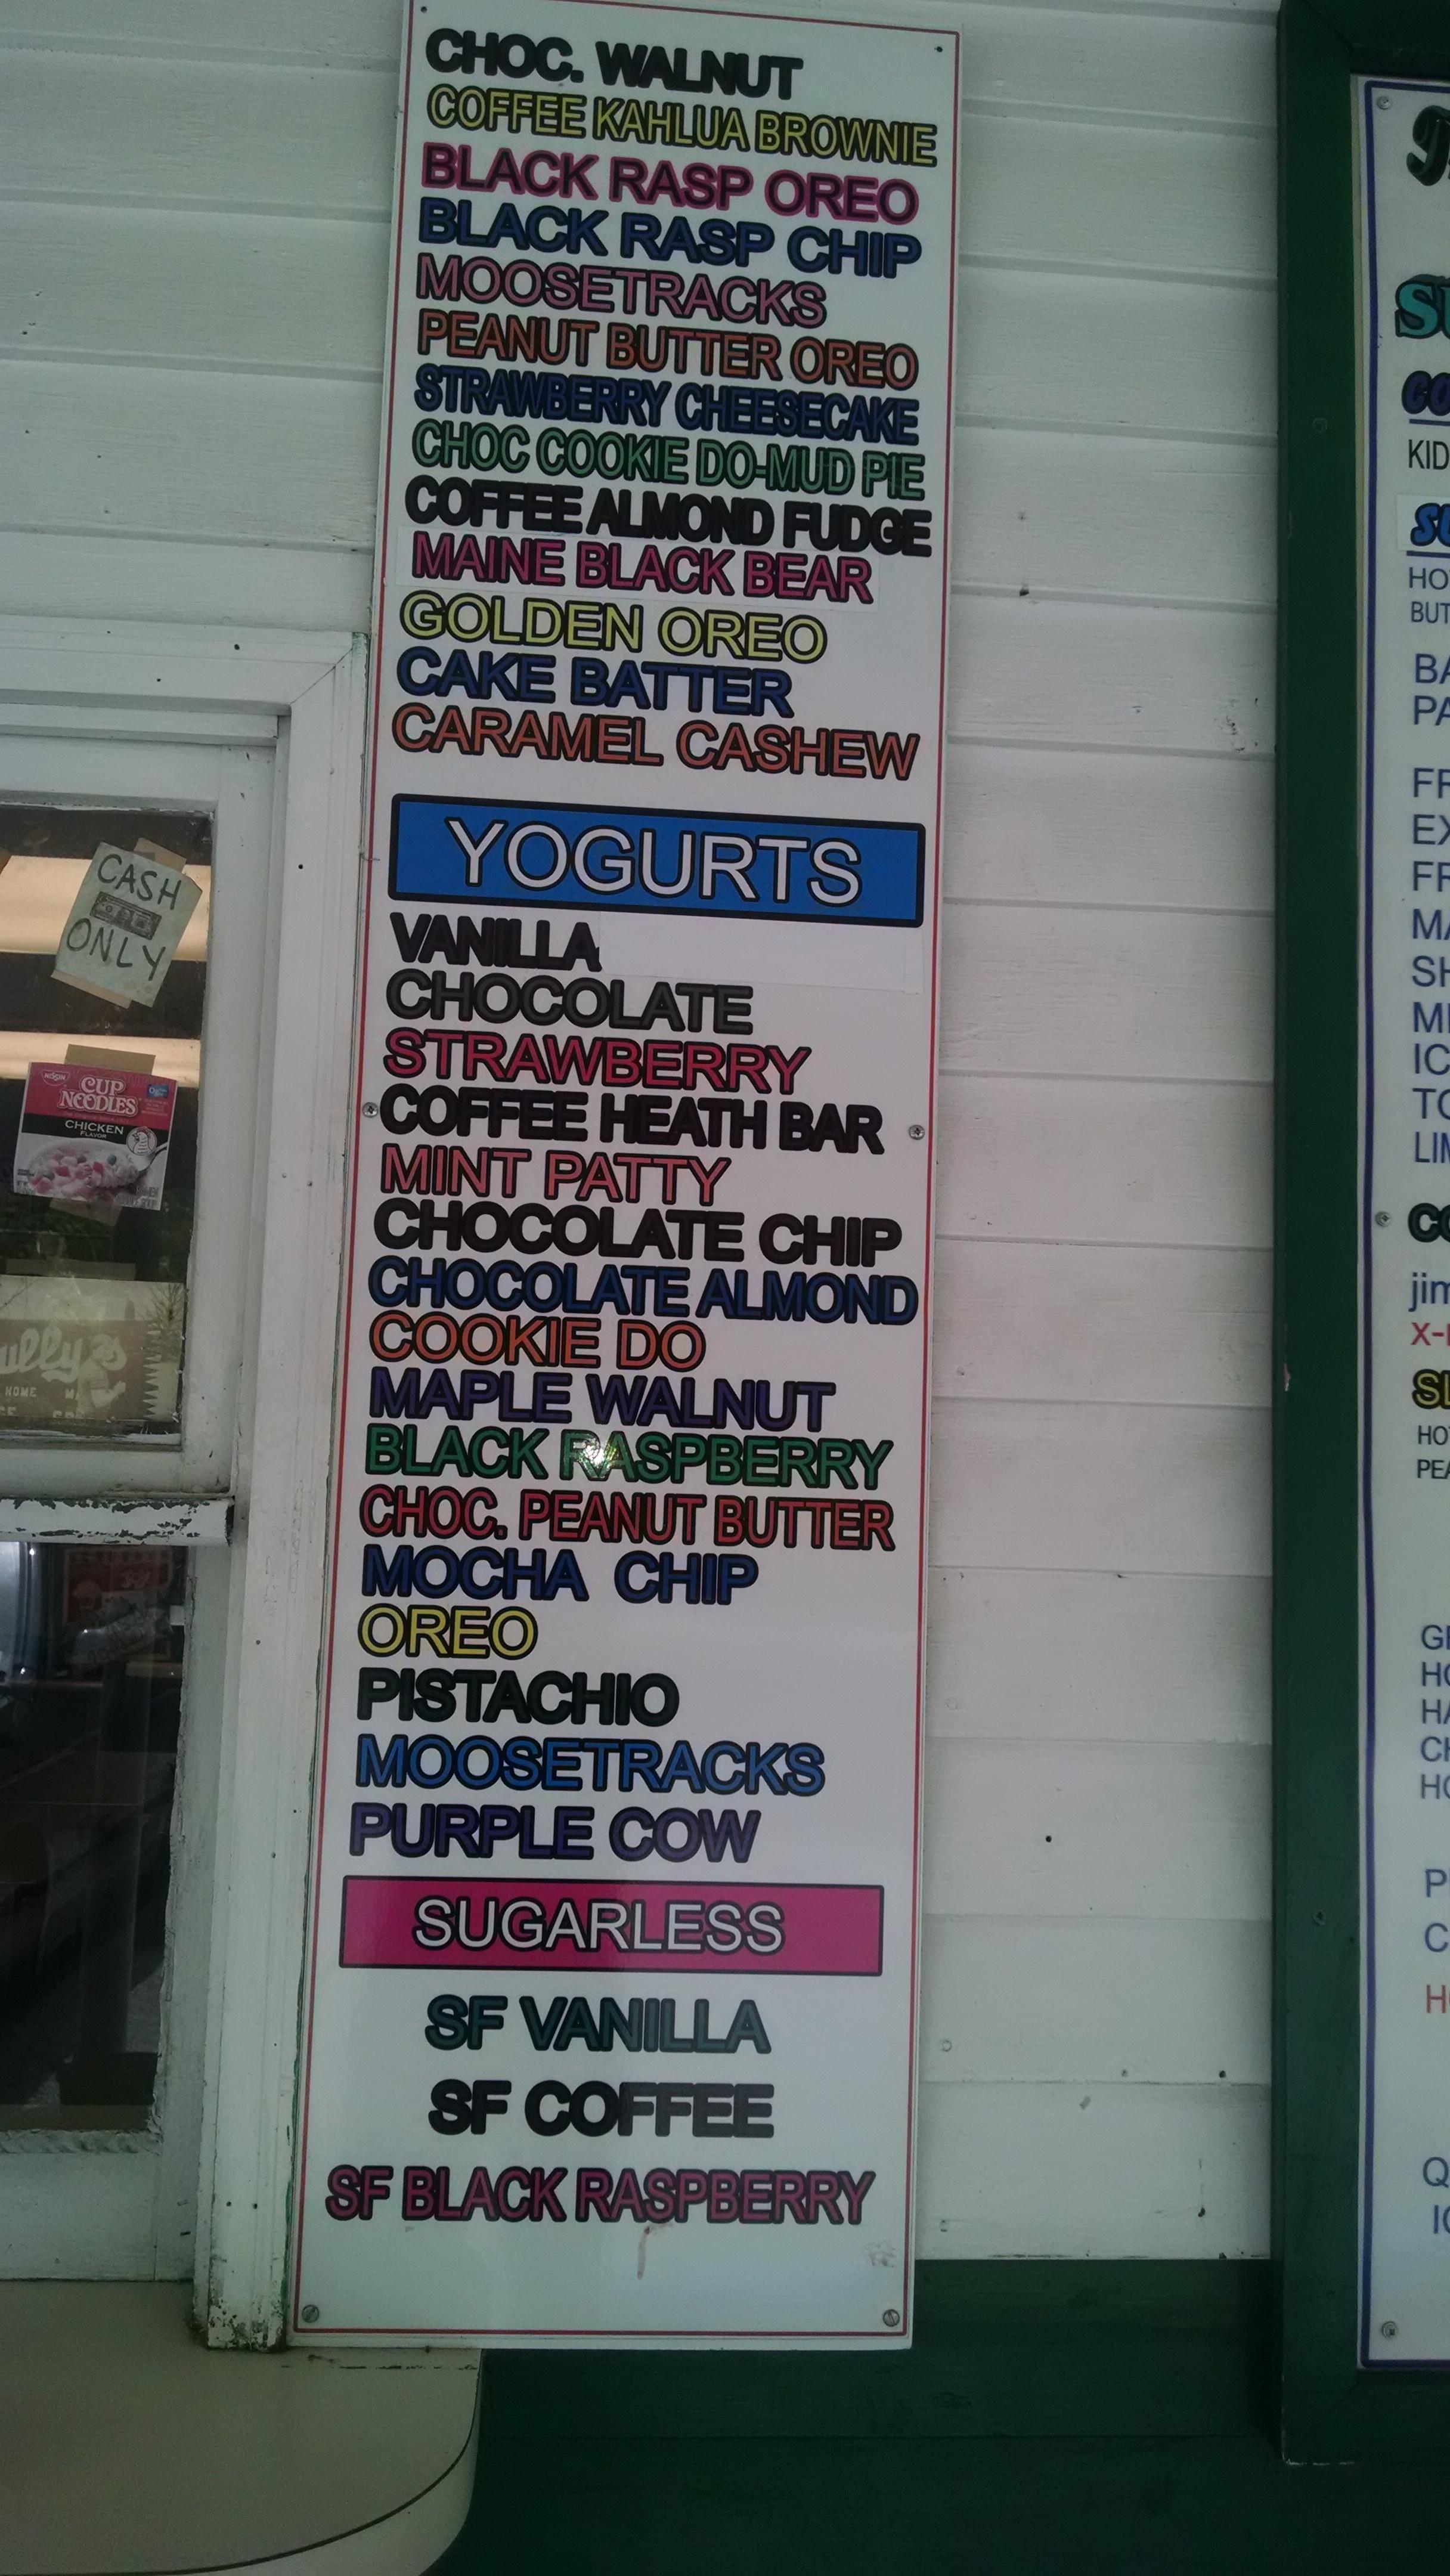 CHOC. WALNUT
COFFEE KAHLUA BROWNIE
BLACK RASP OREO
BLACK RASP CHIP
MOOSETRACKS
PEANUT BUTTER OREO
STRAWBERRY CHEESECAKE
CHOC COOKIE DO-MUD PIE
COFFEE ALMOND FUDGE
MAINE BLACK BEAR
GOLDEN OREO
CAKE BATTER
CARAMEL CASHEW
YOGURTS
VANILLA
CHOCOLATE
STRAWBERRY
COFFEE HEATH BAR
MINT PATTY
CHOCOLATE CHIP
CHOCOLATE ALMOND
COOKIE DO
MAPLE WALNUT
BLACK RASPBERRY
CHOC. PEANUT BUTTER
MOCHA CHIP
OREO
PISTACHIO
MOOSETRACKS
PURPLE COW
SUGARLESS
SF VANILLA
SF COFFEE
SF BLACK RASPBERRY
CASH
ONLY
NISSIN
CUP
NOODLES
CHICKEN
FLAVOR
HOME
KID